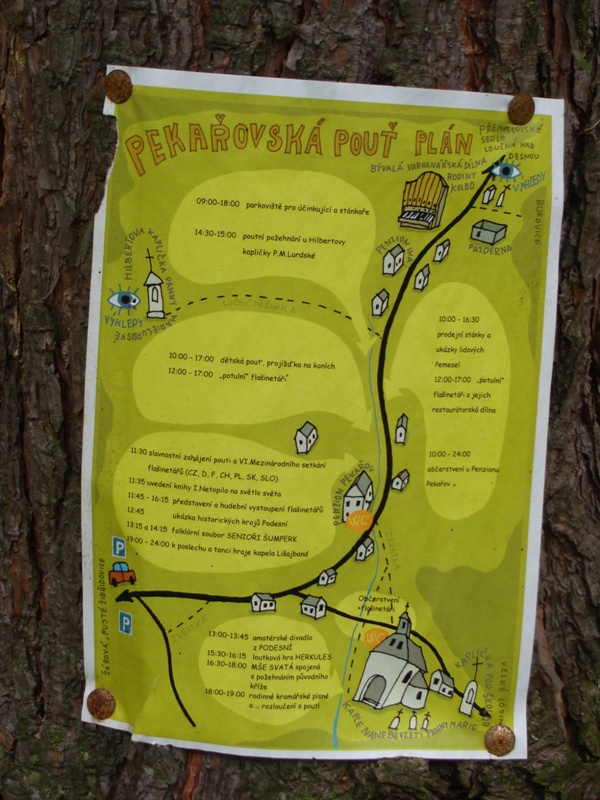 PEKAŘOVSKÁ POUŤ PLÁN
PŘEMYSLOVSKÉ
SEDLO
LOUČNÁ NAD
DESNOU
VÝHLEDY
BÝVALÁ VARHANÁŘSKÁ DÍLNA
RODINY
KOLBŮ
BUKOVICE
PAZDERNA
PENZION INA
09:00-18:00 parkoviště pro účinkující a stánkaře
14:30-15:00 poutní požehnání u Hilbertovy
kapličky P.M.Lurdské
HILBERTOVA KAPLIČKA PANNY
MARIE LURDSKÉ
VÝHLEDY
10:00 - 17:00 dětská pouť, projížďka na koních
12:00 - 17:00 „potulní" flašinetáři
10:00 - 16:30
prodejní stánky a
ukázky lidových
řemesel
12:00-17:00 „potulní"
flašinetáři a jejich
restaurátorská dílna
10:00 - 24:00
občerstvení u Penzionu
Pekařov
11:30 slavnostní zahájení pouti a VI.Mezinárodního setkání
flašinetářů (CZ, D, F, CH, PL, SK, SLO)
11:35 uvedení knihy I.Netopila na světlo světa
11:45 - 16:15 představení a hudební vystoupení flašinetářů
12:45 ukázka historických krojů Podesní
13:15 a 14:15 folklórní soubor SENIOŘI ŠUMPERK
19:00 - 24:00 k poslechu a tanci hraje kapela Lišajband
PENZION PEKAŘOV
WC
P
P
ŽÁROVÁ, PUSTÉ ŽIBŘIDOVICE
ZKRATKA
ZKRATKA
Občerstvení
flašinetáři
WC
13:00-13:45 amatérské divadlo
z PODESNÍ
15:30-16:15 loutková hra HERKULES
16:30-18:00 MŠE SVATÁ spojená
s požehnáním původního
kříže
18:00-19:00 rodinné kramářské písně
a ... rozloučení s poutí
KAPLE NANEBEVZETÍ PANNY MARIE
VELKÉ LOSINY